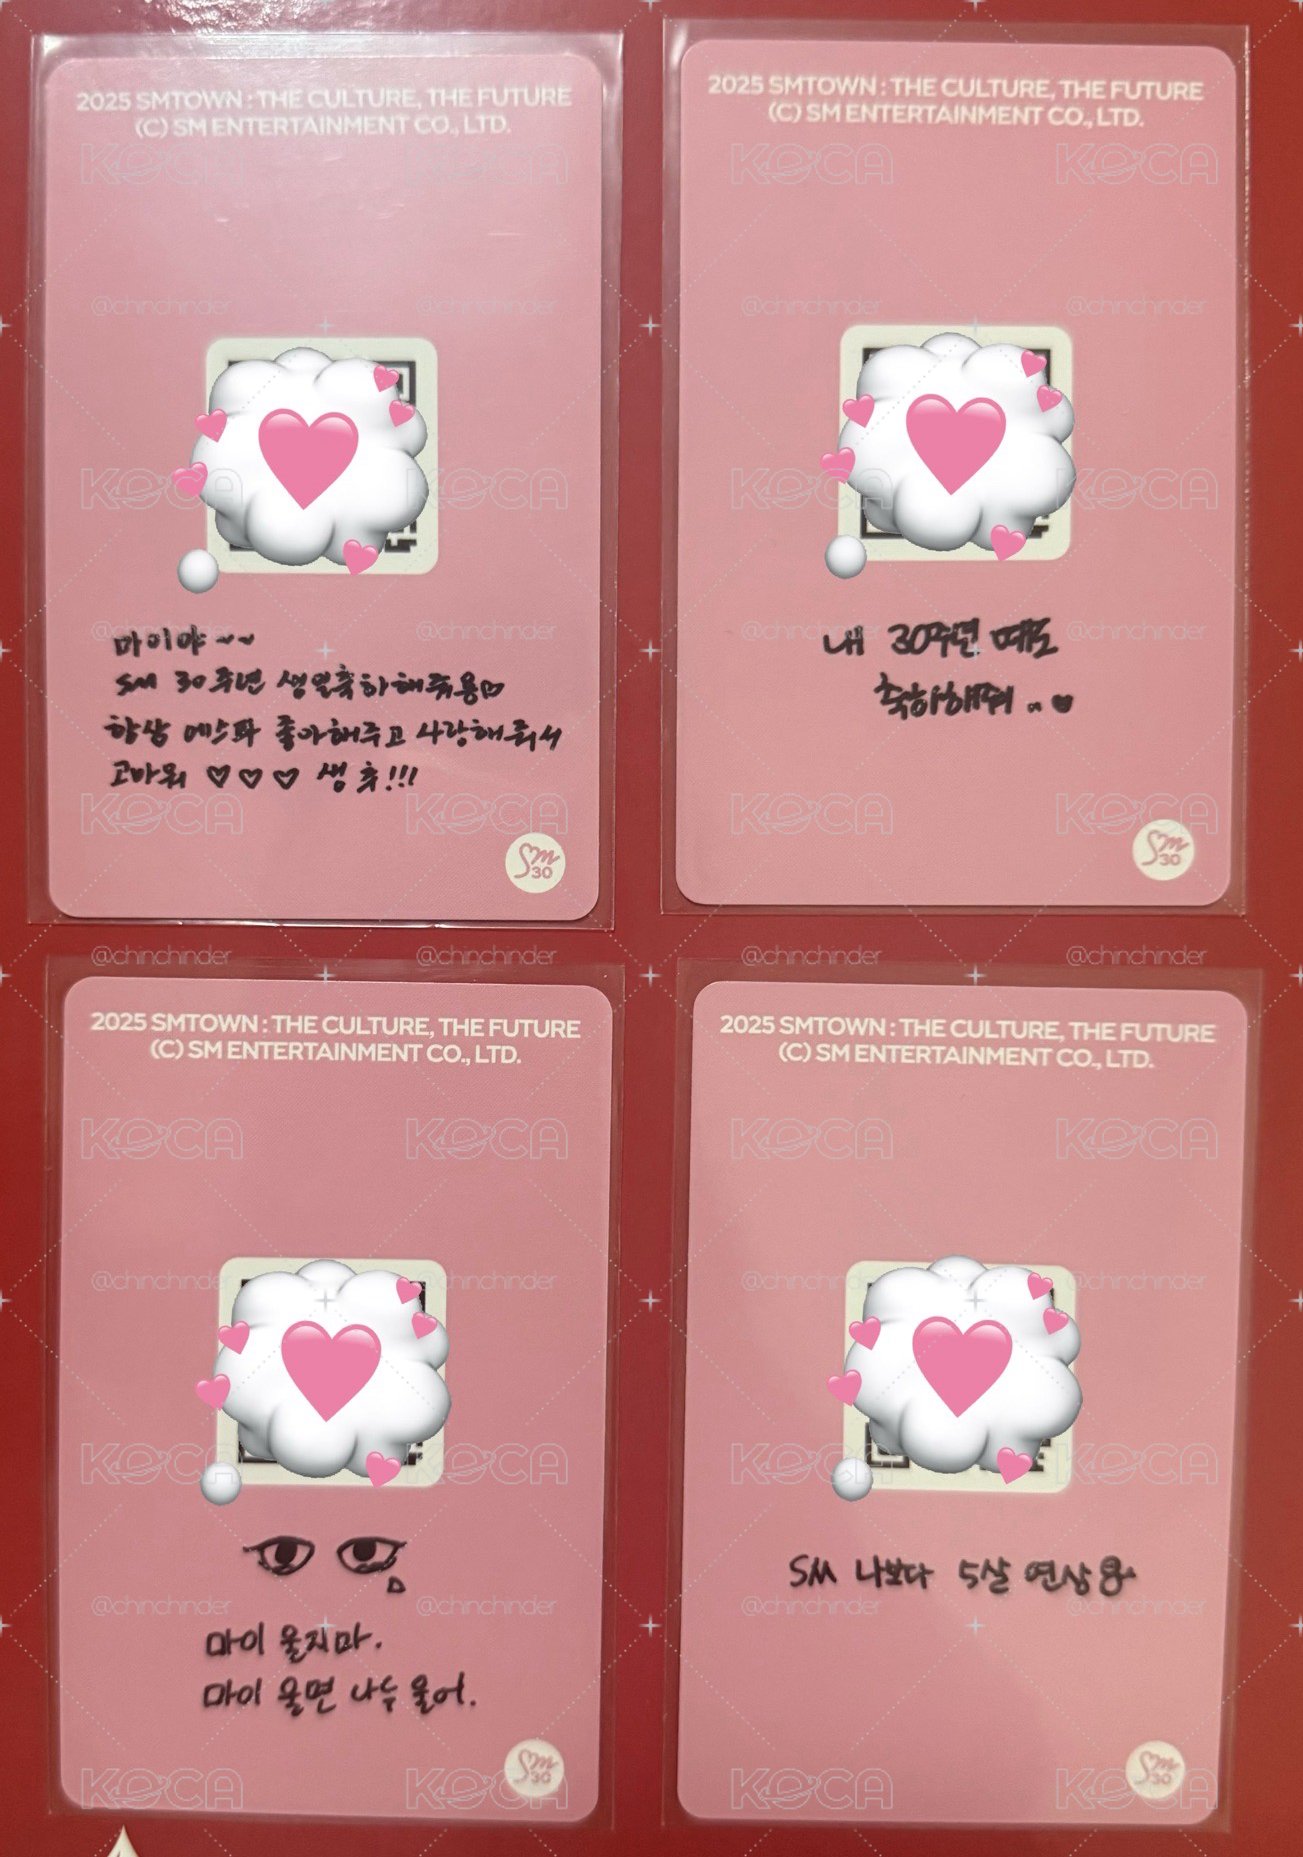 2025 SMTOWN : THE CULTURE, THE FUTURE
(C) SM ENTERTAINMENT CO., LTD.
마이야~~
SM 30주년 생일축하해줘용♡
항상 에스파 좋아해주고 사랑해줘서
고마워 ♡♡♡ 생축!!!
Sm
30
2025 SMTOWN : THE CULTURE, THE FUTURE
(C) SM ENTERTAINMENT CO., LTD.
내 30주년 때도
축하해줘..♥
Sm
30
2025 SMTOWN : THE CULTURE, THE FUTURE
(C) SM ENTERTAINMENT CO., LTD.
마이 울지마.
마이 울면 나두 울어.
Sm
30
2025 SMTOWN : THE CULTURE, THE FUTURE
(C) SM ENTERTAINMENT CO., LTD.
SM 나보다 5살 연상용
Sm
30
KOCA
@chinchinder